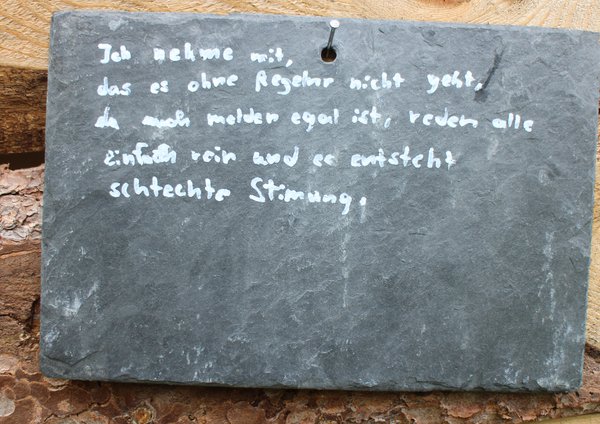 Ich nehme mit,
das es ohne Regeln nicht geht,
melden egal ist, reden alle
einfach rein und es entsteht
schlechte Stimung.